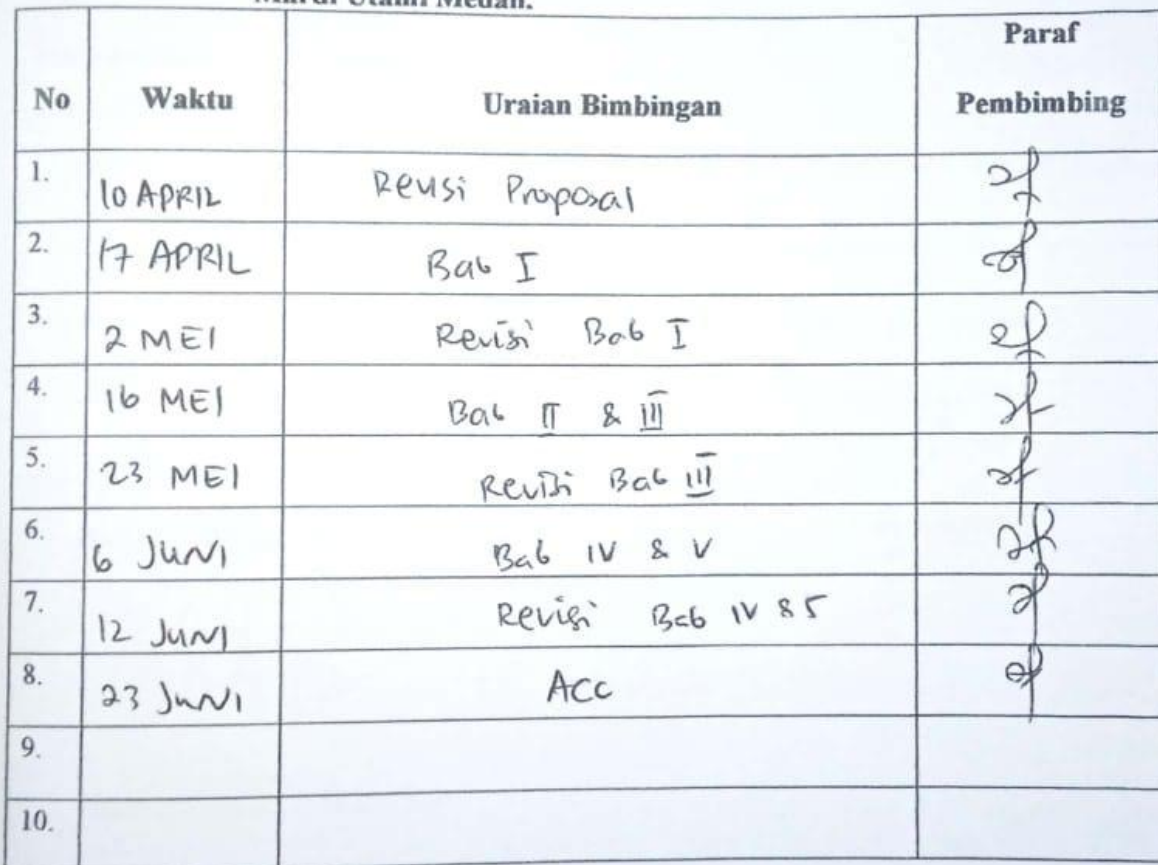 Utami Medan.
No Waktu Uraian Bimbingan Paraf Pembimbing
1. 10 APRIL Revisi Proposal
2. 17 APRIL Bab I
3. 2 MEI Revisi Bab I
4. 16 MEI Bab II & III
5. 23 MEI Revisi Bab III
6. 6 JUNI Bab IV & V
7. 12 JUNI Revisi Bab IV & 5
8. 23 JUNI ACC
9.
10.